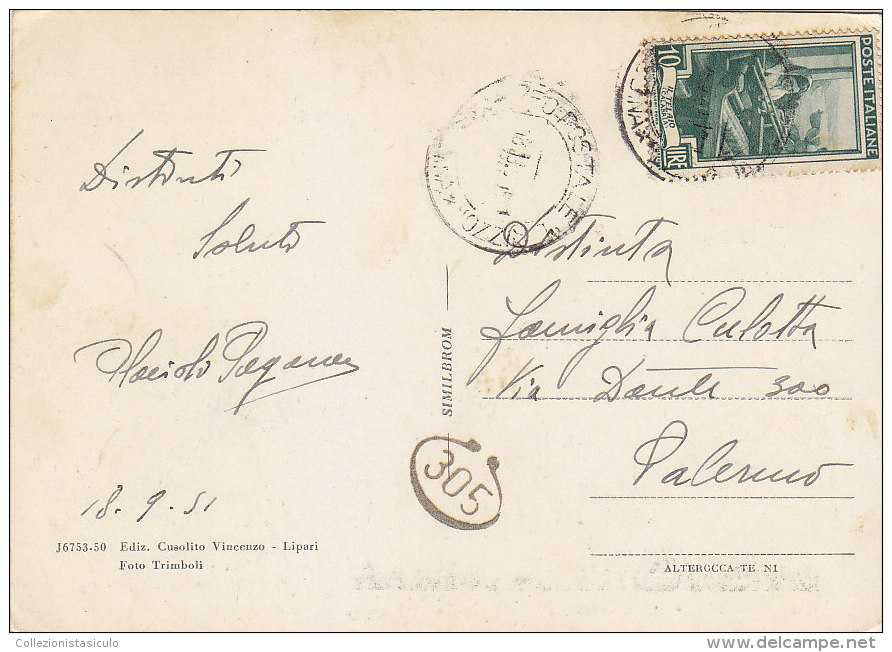 POSTE ITALIANE
10
LIRE
Distinti
Saluti
Pagano
18 - 9 - 51
J6753-50 Ediz. Cusolito Vincenzo - Lipari
Foto Trimboli
SIMILBROM
305
Distinta
Famiglia Culotta
Via Dante 300
Palermo
ALTEROCCA-TERNI
Collezionistasiculo
delcampe.net